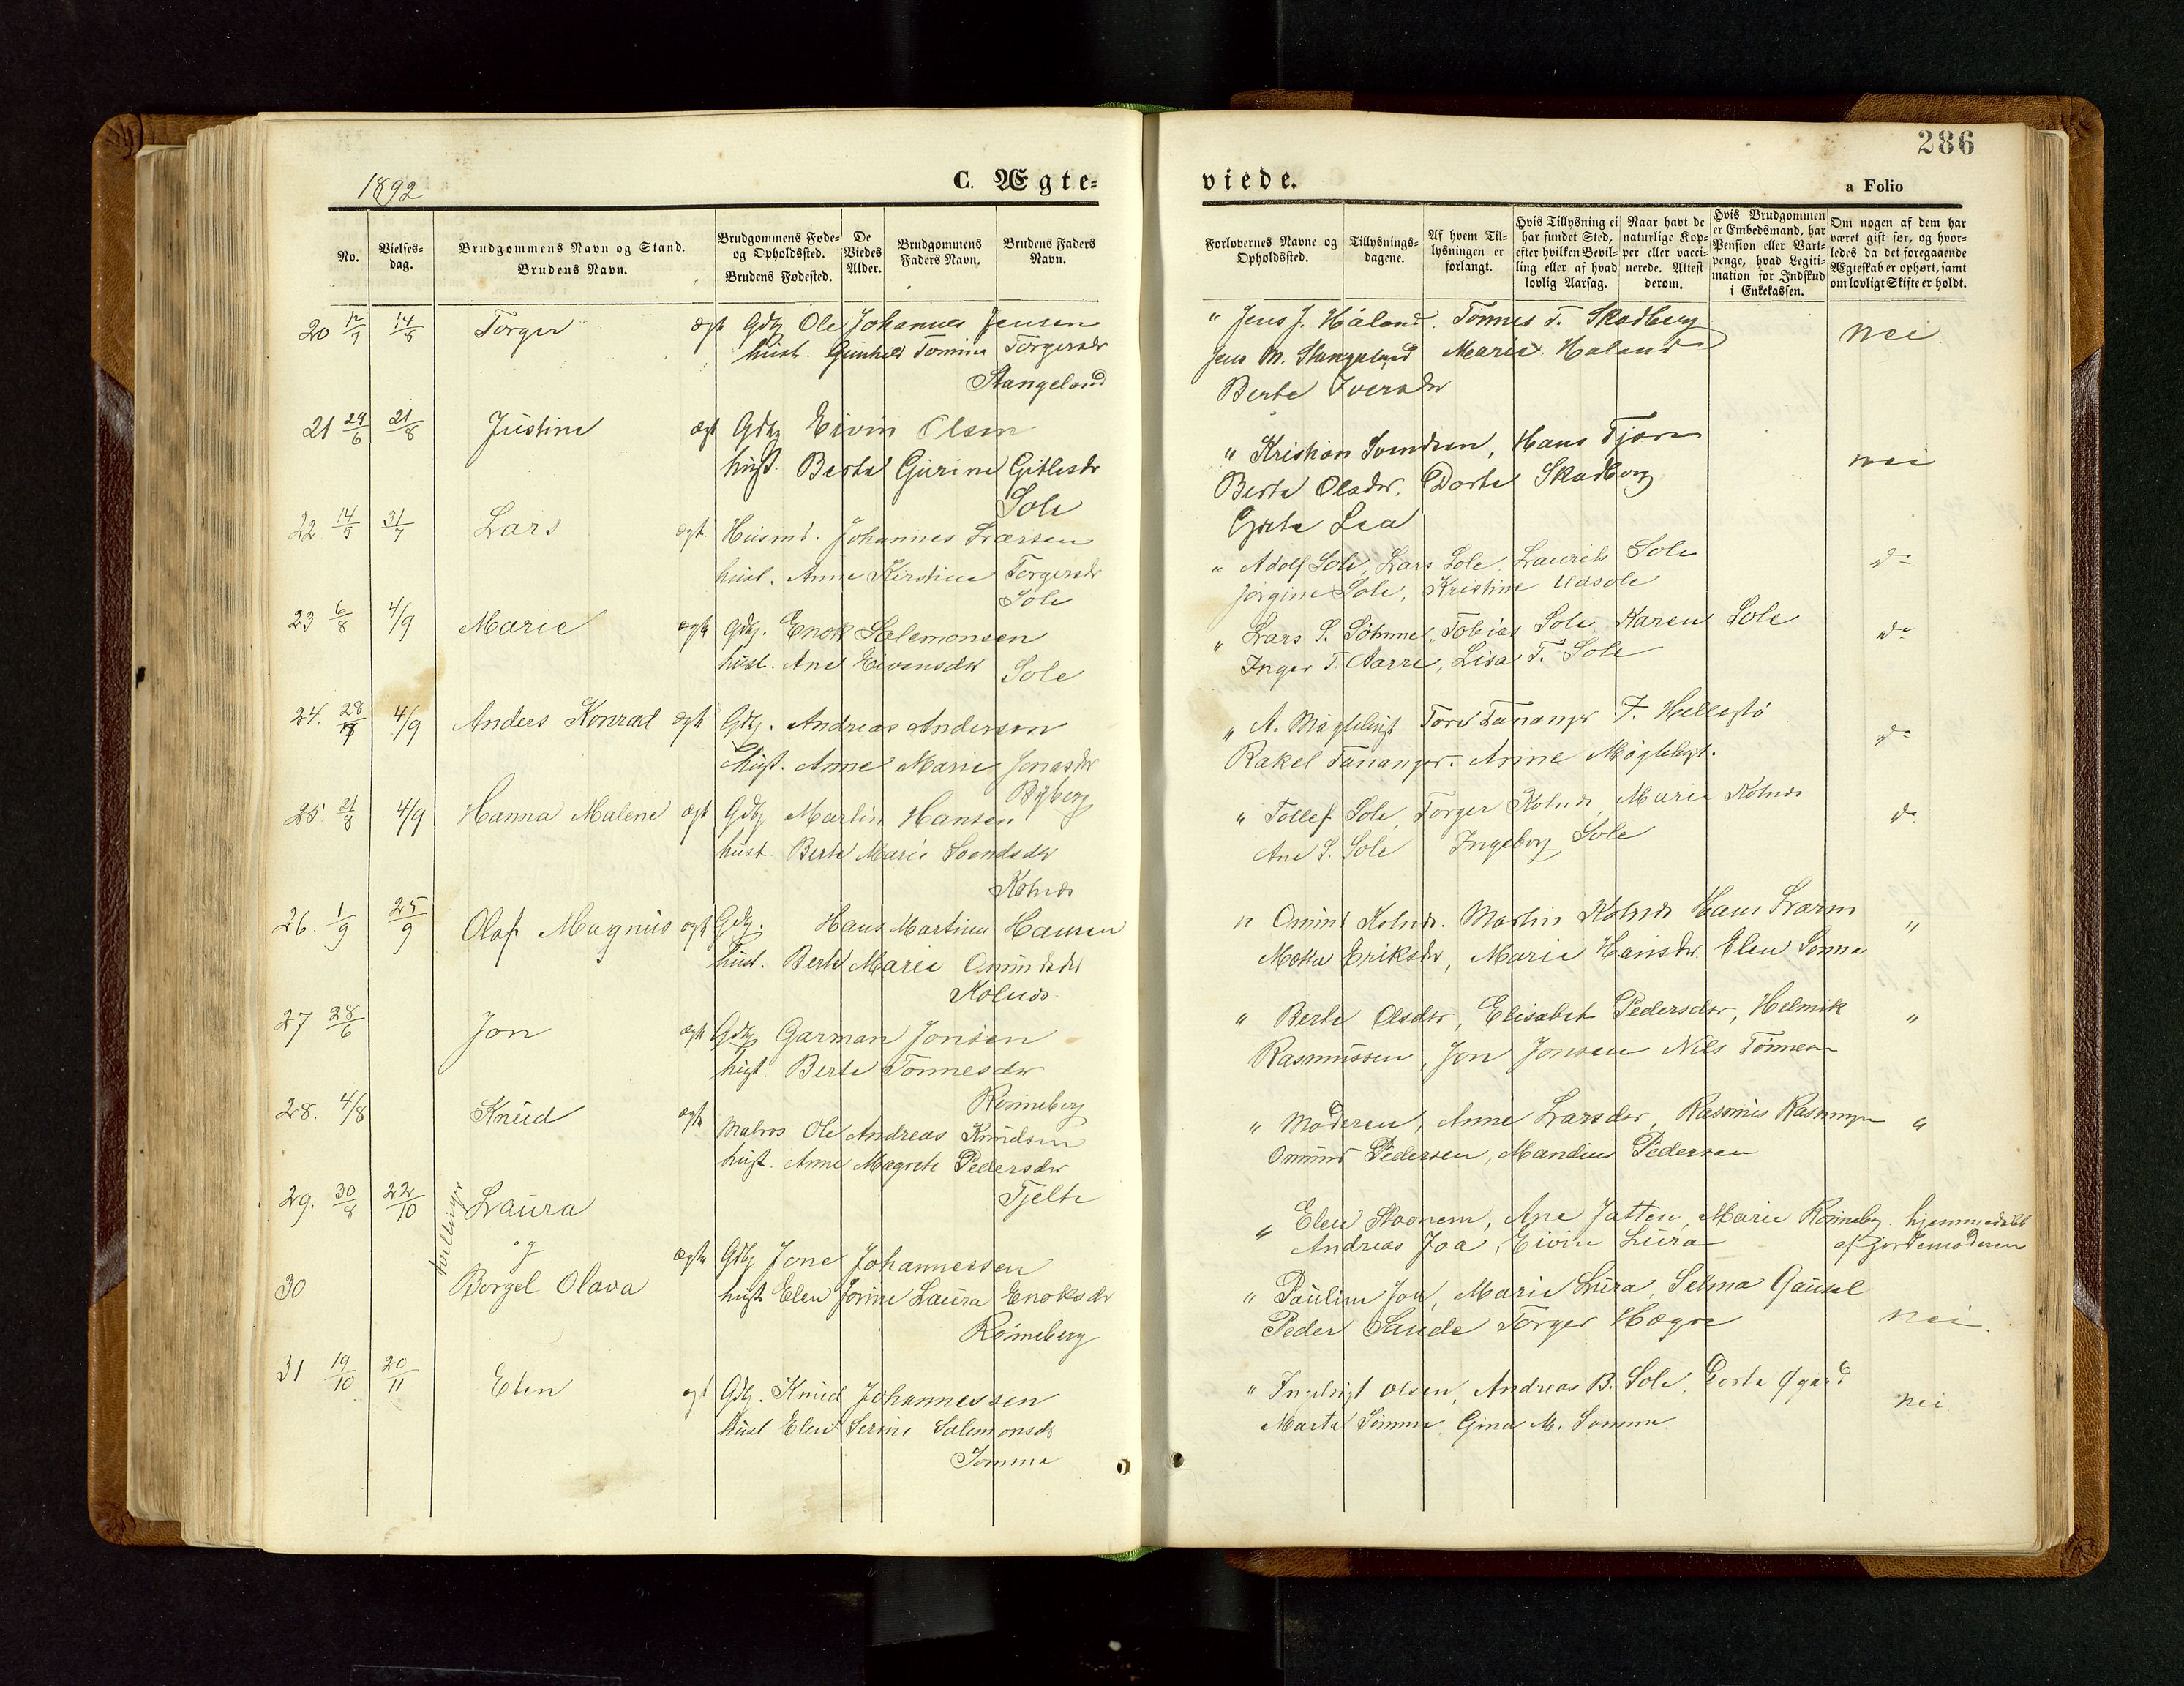 286
1892
C. Ægte-
viede.
a Folio
No.
Vielses-
dag.
Brudgommens Navn og Stand.
Brudens Navn.
Brudgommens Føde-
og Opholdssted.
Brudens Fødested.
De
Viedes
Alder.
Brudgommens
Faders Navn.
Brudens Faders
Navn.
Forlovernes Navne og
Opholdssted.
Tillysnings-
dagene.
Af hvem Til-
lysningen er
forlangt.
Hvis Tillysning ei
har fundet Sted,
efter hvilken Bevil-
ling eller af hvad
lovlig Aarsag.
Naar havt de
naturlige Kop-
per eller vacci-
nerede. Attest
derom.
Hvis Brudgommen
er Embedsmand, har
Pension eller Vart-
penge, hvad Legiti-
mation for Indskud
i Enkekassen.
Om nogen af dem har
været gift før, og hvor-
ledes da det foregaaende
Ægteskab er ophørt, samt
om lovligt Skifte er holdt.
20 12/7 14/8 Torger ægt Gdbr Ole Johannes Jensen
hust. Gunhild Tomine Torgersdr
Stangeland
21 29/6 21/8 Justine ægt Gdbr Eivin Olsen
hust. Berta Gurine Gitlesdr
Sole
22 14/5 31/7 Lars ægt. Husmd. Johannes Larsen
hust. Anne Kirstine Torgersdr
Sole
23 6/8 4/9 Marie ægte Gdbr. Enok Salemonsen
hust. Ane Eivensdr Sole
24. 28/7 4/9 Anders Konrad ægte Gdbr. Andreas Andersen
hust. Anne Marie Jonasdr
Byberg
25. 21/8 4/9 Hanna Malene ægt Gdbr Martin Hansen
hust Berte Marie Svendsdr
Kolnds
26. 1/9 25/9 Olaf Magnus ægte Gdbr. Hans Martinus Hansen
hust. Berte Marie Omundsdr
Kolnds
27 28/6 Jon ægt Gdbr Garman Jonsen
hust. Berte Tønnesdr
Rønneberg
28. 4/8 Knud ægte
Matros Ole Andreas Knudsen
hust. Anne Magrete Pedersdr
Tjelte
29. 30/8 22/10 tvillinger Laura
og
ægte Gdbr Jone Johannessen
30 Borgel Olava hust Elen Jorine Laura Enoksdr
Rønneberg
31 19/10 20/11 Elen ægt Gdbr. Knud Johannessen
hust Elen Serine Salemonsdr
Sømme
" Jens J. Håland. Tønnes T. Skadberg
Jens M. Stangeland Marie Haland nei
Berte Iversdr
" Kristian Svendsen, Hans Tjøra
Berte Olsdr. Dorte Skadberg nei
Grete Lea
" Adolf Sole, Lars Sole, Laurits Sole do
Jørgine Sole, Kristine Udsole
" Lars S. Sømme, Tobias Sole, Karen Sole do
Inger T. Aarre, Lisa T. Sole
" A. Myklebust Tore Tananger T. Hellestø do
Rakel Tananger. Anne Myklebust.
" Tollef Sole, Torger Kolnds, Marie Kolnds do
Ane S. Sole Ingeborg Sole
" Omund Kolnds. Martin Kolnds Hans "
Eriksdr, Marie Hansdr. Elen Sømme
" Berte Olsdr, Elisabet Pedersdr, Helmik "
Rasmussen, Jon Jonsen Nils Tønnesen
" Moderen, Anne Larsdr, Rasmus Rasmussen "
Omund Pedersen, Mandius Pedersen
" Elen Stornem, Ane Jåtten, Marie Rønneberg hjemmedøbt
Andreas Joa, Eivin Lura af Jordemoderen
" Pauline Joa, Marie Lura, Selma Gausel
Peder Sande Torger nei.
" Ingebrigt Olsen, Andreas B. Sole,
Marta Sømme Gina M. Sømme nei